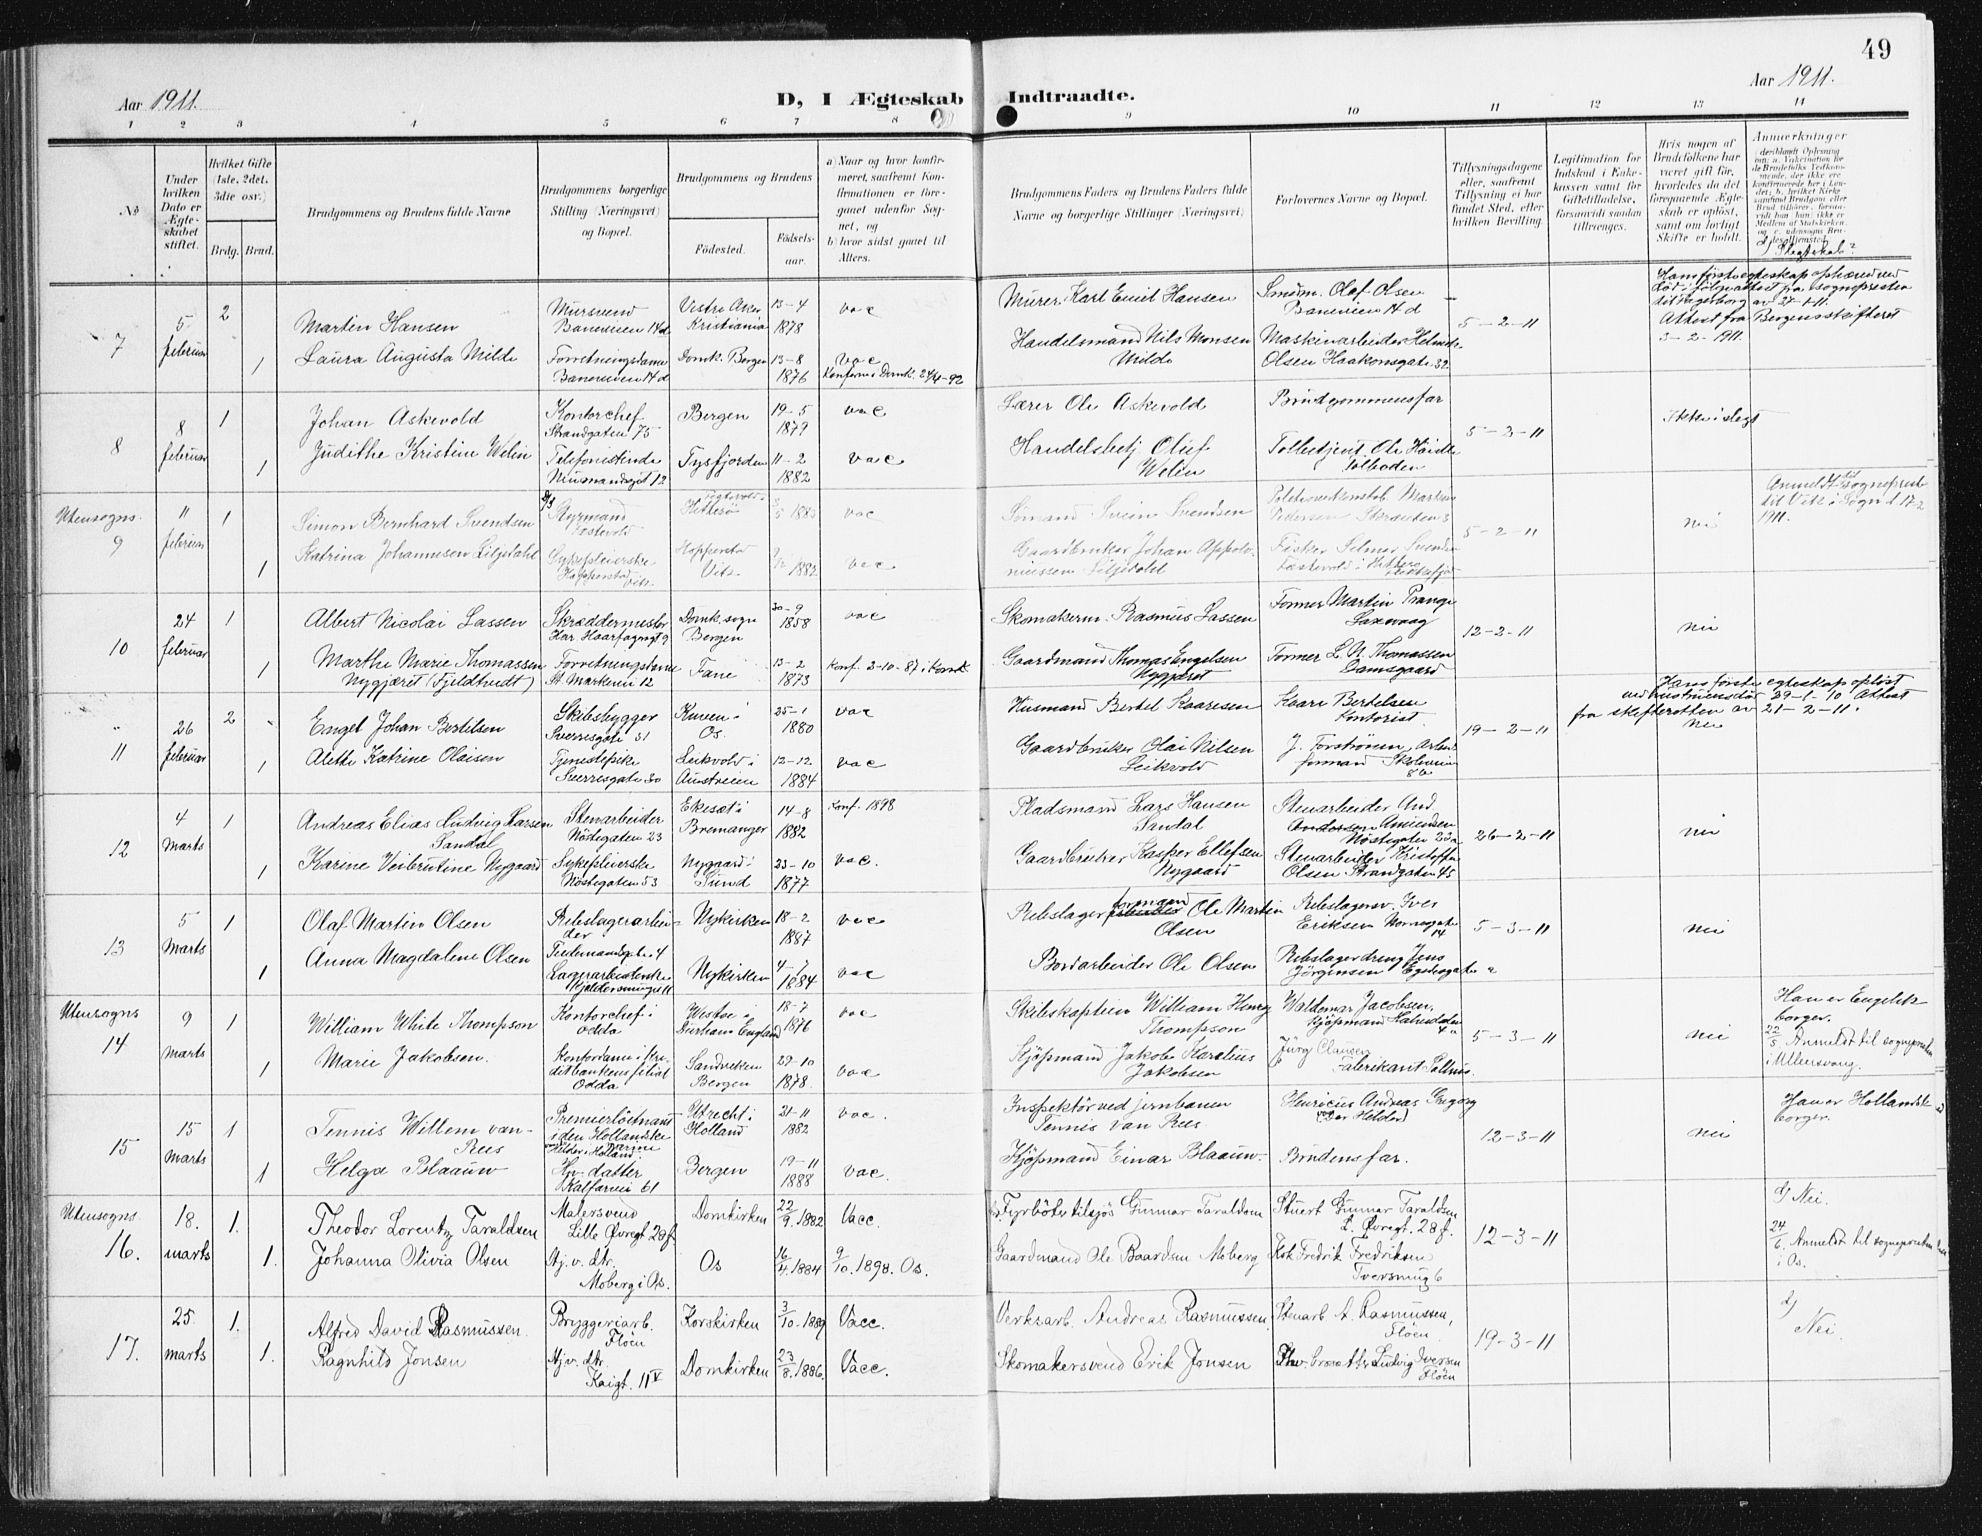 49
Aar 1911.
D, I Ægteskab Indtraadte.
Aar 1911.
1 2 3 4 5 6 7 8 9 10 11 12 13 14
No
Under hvilken Dato er Ægteskabet stiftet.
Hvilket Gifte (1ste, 2det, 3die osv.)
Brdg. Brud.
Brudgommens og Brudens fulde Navne
Brudgommens borgerlige Stilling (Næringsvei) og Bopæl.
Brudgommens og Brudens
Födested.
Födselsaar.
a) Naar og hvor konfirmeret, saafremt Konfirmationen er foregaaet udenfor Sognet, og
b) hvor sidst gaaet til Alters.
Brudgommens Faders og Brudens Faders fulde Navne og borgerlige Stillinger (Næringsvei)
Forlovernes Navne og Bopæl.
Tillysningsdagene eller, saafremt Tillysning ei har fundet Sted, efter hvilken Bevilling.
Legitimation for Indskud i Enkekassen samt for Giftetilladelse, forsaavidt saadan tiltrænges.
Hvis nogen af Brudefolkene har været gift før, hvorledes da det foregaaende Ægteskab er opløst, samt om lovligt Skifte er holdt.
Anmærkninger
7
5 februar
2
Martin Hansen
Mursvend
Baneveien 14d
Vestre Aker Kristiania
13-4 1878
vac
Murer Karl Emil Hansen
Smedm. Olaf Olsen
Baneveien 14 d
5-2-11
Hans første egteskap ophævet ved
død ifølge attest fra sognepresten
Attest fra Bergens skifteret
3-2-1911.
1
Laura Augusta Milde
Forretningsdame
Baneveien 14d
Domk. Bergen
13-8 1876
vac
Konfirm i Domk. 24/4-92
Handelsmand Nils Monsen
Milde
Maskinarbeider
Olsen Haakonsgate 32
8
8 februar
1
Johan Askevold
Kontorchef
Strandgaten 75
Bergen
19-5 1879
vac
Lærer Ole Askevold
Brudgommens far
5-2-11
Ikke i slegt
1
Judithe Kristine Welin
Telefonistinde
Neumandsgt 12
Tysfjorden
11-2 1882
vac
Handelsbetj Oluf
Welin
Toldbetjent Ole
Tolboden
Utensogns
9
11 februar
1
Simon Bernhard Svendsen
Styrmand
Hitterø
vac
Sømand Svein Svendsen
Politioverkonstab. Markus
Pedersen
5-2-11
nei
Anmeldt til sogneprest
til Vik i Sogn d. 17-2
1911.
1
Katrina Johannesen Liljedahl
Sykepleierske
Hopperstad
Vik
Hopperstad
Vik
1882
vac
Gaardbruker Johan Appolo-
niussen Liljedahl
Fisker Selmer Svendsen
10
24 februar
1
Albert Nicolai Lassen
Skræddermester
Har. Haarfagresgt 9
Domk. sogn
Bergen
30-9 1858
vac
Skomakerm. Rasmus Lassen
Former Martin Prange
Laxevaag
12-2-11
nei
1
Marthe Marie Thomassen
Nygjæret (Fjeldtvedt)
Forretningsdame
St. Markevei 12
Fane
13-2 1873
Konf 2-10-87 i Korsk.
Gaardmand Thomas Engelsen
Nygjæret
Former L. N. Thomassen
Damsgaard
11
26 februar
2
Engel Johan Bertelsen
Skibsbygger
Sverresgate 31
Kuven i
Os.
25-1 1880
vac
Husmand Bertel Kaaresen
Kaare Bertelsen
Kontorist.
19-2-11
Hans første egteskap opløst
ved hustruens død 29-1-10 Attest
fra skifteretten av 21-2-11.
nei
1
Alethe Katrine Olaisen
Tjenestepike
Sverresgate 30
Leikvold i
Austreim
12-12 1884
vac
Gaardbruker Olai Nilsen
Leikvold
J. Forströnen, Arbeids
formand Skoleveien
8b
12
4 Marts
1
Andreas Elias Ludvig Larsen
Sandal
Stenarbeider
Nöstegaten 23
Ekesæt i
Bremanger
14-8 1882
Konf. 1898
Pladsmand Lars Hansen
Sandal
Stenarbeider And.
Andersen Amundsen
Nöstegaten 23a
26-2-11
nei
1
Karine Veibrutine Nygaard
Sykepleierske
Nöstegaten 53
Nygaard i
Sund
23-10 1877
vac.
Gaardbruker Kasper Ellefsen
Nygaard
Stenarbeider Kristoffer
Olsen Strandgaten 45
13
5 Marts
1
Olaf Martin Olsen
Rebslagerarbei-
der
Tiedemandsgate 4
Nykirken
18-2 1887
vac
Rebslager formand Ole Martin
Olsen
Rebslagersv. Iver
Eriksen Nornesgate
14
5-3-11
nei
1
Anna Magdalene Olsen
Lagerarbeiderske
Kjeldersmuget 11
Nykirken
4-7 1884
vac
Bordarbeider Ole Olsen
Rebslagerdreng Jens
Jörgensen Egedesgate 2
Utensogns
14
9 Marts
1
William White Thompson
Kontorchef i
Odda
Westoe i
Durham England
18-7 1876
vac
Skibskaptein William Henry
Thompson
Waldemar Jacobsen,
Kjöpmand Kalvedalen
5-3-11
nei
Han er Engelsk
borger.
22/5 Anmeldt til sognepresten
i Ullensvang.
1
Marie Jakobsen.
Kontordame i Kre-
ditbankens filial
Odda
Sandviken
Bergen
29-10 1878.
vac
Kjöpmand Jakob Karelius
Jakobsen
Jürg Clausen
Fabrikant Solheim
15
15 Marts
1
Tennis Willem van-
Rees
Premierlöitnant
i den Hollandske
Helder i Holland
Utrecht i
Holland
21-11 1882
vac.
Inspektör ved jernbanen
Tennis van Rees
Henricus Andreas Gregory
van Helden
12-3-11
nei
Han er Hollandsk
borger.
1
Helga Blaauw
Hv. datter
Kalfarvei 61
Bergen
19-11 1888
vac.
Kjöpmand Einar Blaauw-
Brudens far.
Utensogns.
16.
18. marts
1.
Theodor Lorentz Taraldsen
Malersvend
Lille Øvregt 28f
Domkirken
22/9. 1882
Vacc.
Fyrböter tilsjös Gunnar Taraldsen
Stuert Gunnar Taraldsen
L. Øvregt. 28 f.
12-3-11
d) Nei.
24/6. Anmeldt til sognepresten
i Os.
1.
Johanna Olivia Olsen
Hj. v. dtr.
Moberg i Os.
Os
16/4. 1884
9/10. 1898. Os.
Gaardmand Ole Baardsen Moberg
Kok Fredrik Fredriksen
Tversmug 6
17.
25. marts
1.
Alfred David Rasmussen.
Bryggeriarb.
Flöen
Korskirken
3/10. 1889
Vacc.
Verksarb. Andreas Rasmussen
Stenarb A. Rasmussen,
Flöen.
19-3-11
d)
Nei.
1.
Ragnhild Jonsen
Hj. v. dtr.
Kaigt. 11 V
Domkirken
23/8. 1886.
Vacc.
Skomakersvend Erik Jonsen
Ludvig Iversen
Flöen